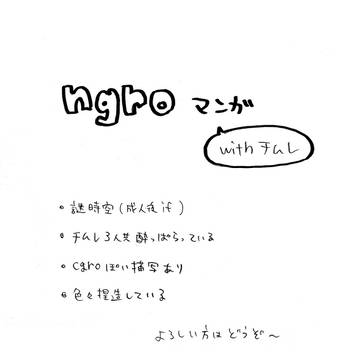 ngro マンガ
with チムレ
• 謎時空(成人後if)
• チムレ3人共酔っぱらっている
• cgroぽい描写あり
• 色々捏造している
よろしい方はどうぞ〜